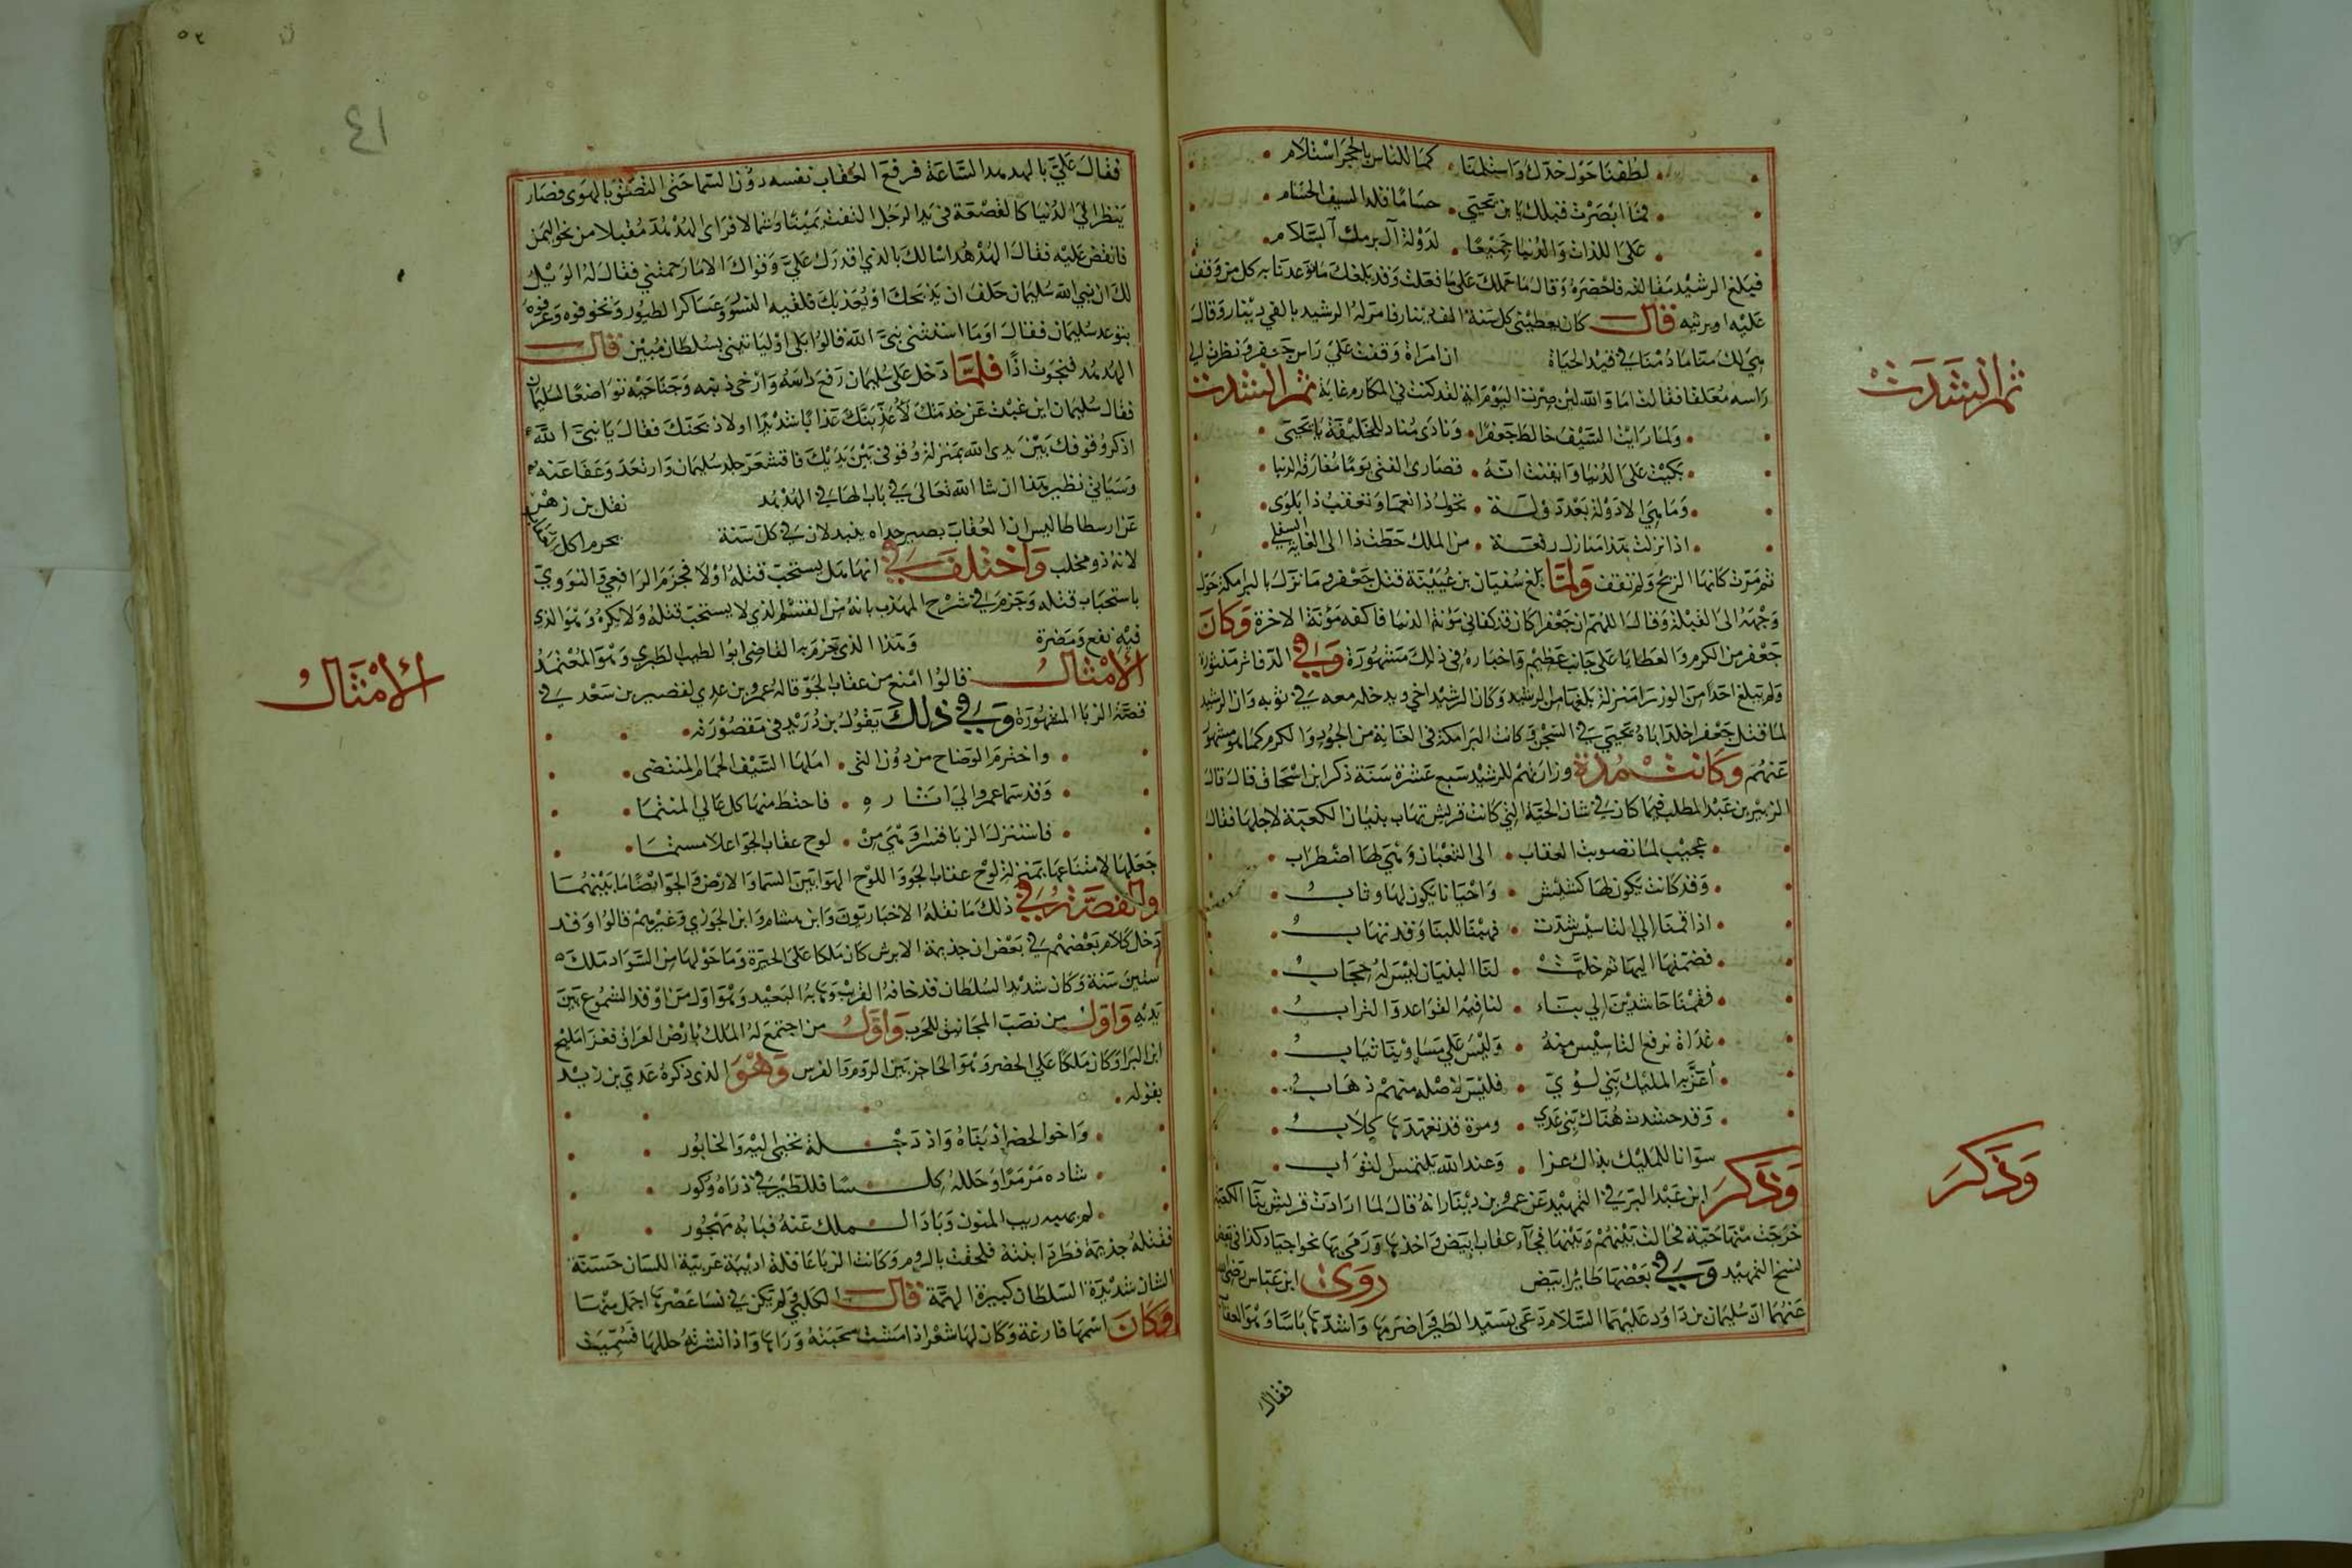 لطفنا حول خدك واستلمنا . كما للناس بالحجر استلام
فما ابصرت قبلك يا بن يحيى . حساما فله السيف الحسام
على اللذات والدنيا جميعا . لدولة آل برمك السلام
فبلغ الرشيد مقالته فاحضره وقال ما حملك على ما فعلت وقد بلغك ما توعدنا به كل من وقف
عليه او يرثيه قال كان يعطيني كل سنة الف دينار فامر له الرشيد بالفي دينار وقال
هي لك منا ما دمنا في قيد الحياة ان امراة وقفت على راس جعفر ونظرت الى
راسه معلقا فقالت اما والله لين صرت اليوم اية لقد كنت في المكارم غاية ثم انشدت
ولما رايت السيف خالط جعفرا . ونادى مناد للخليفة يا يحيى
بكيت على الدنيا وايقنت انه . قصارى الفتى يوما مفارقة الدنيا
وما هي الا دولة بعد دولة . تخول ذا نعما وتعقب ذا بلوى
اذا نزلت هذا منازل رفعة . من الملك حطت ذا الى الغاية السفلى
ثم مرت كانها الريح ولم تقف ولما بلغ سفيان بن عيينة قتل جعفر وما نزل بالبرامكة حول
وجهه الى القبلة وقال اللهم ان جعفرا كان قد كفاني مؤنة الدنيا فاكفه مؤنة الاخرة وكان
جعفر من الكرم والعطايا على جانب عظيم واخباره في ذلك مشهورة وفي الدفاتر مذبورة
ولم تبلغ احدا من الوزرا منزلة بلغها من الرشيد وكان الرشيد اخي ويدخله معه في ثوبه وان الرشيد
لما قتل جعفر اخلد اباه يحيى في السجن وكانت البرامكة في الغاية من الجود والكرم كما هو مشهور
عنهم وكانت مدة وزارتهم للرشيد سبع عشرة سنة ذكر ابن اسحاق قال قال
الزبير بن عبد المطلب فيما كان في شان الحية التي كانت قريش تهاب بنيان الكعبة لاجلها فقال
عجبت لما تصوبت العقاب . الى الثعبان وهي لها اضطراب
وقد كانت يكون لها كشيش . واحيانا يكون لها وثاب
اذا قمنا الى التاسيس شدت . فهبنا للبنا وقد تهاب
فضمتها اليها ثم خلت . لنا البنيان ليس له حجاب
فقمنا حاشدين الى بناء . لنا فيه القواعد والتراب
غداة نرفع التاسيس منه . وليس على مساوينا ثياب
اعز به المليك بني لؤي . فليس لاصله منهم ذهاب
وقد حشدت هناك بني عدي . ومرة قد تعهدها كلاب
سوانا للمليك بذاك عزا . وعند الله يلتمس الثواب
وذكر ابن عبد البر في التمهيد عن عمرو بن دينار انه قال لما ارادت قريش بنا الكعبة
خرجت منها حية فحالت بينهم وبينها فجاء عقاب ابيض فاخذها ورمى بها نحو اجياد كذا في بعض
نسخ التمهيد وفي بعضها طائر ابيض روى ابن عباس رضي الله
عنهما ان سليمان بن داود عليهما السلام دعى بسيد الطير اضرمها واشدها باسا وهو العقاب
فقال
ثم انشدت
وذكر
٤١
فقال علي بالهدهد الساعة فرفع العقاب نفسه دون السما حتى التصق بالهوى فصار
ينظر الى الدنيا كالقصعة في يد الرجل التفت يمينا وشمالا فراى الهدهد مقبلا من نحو اليمن
فانقض عليه فقال الهدهد اسالك بالذي اقدرك علي وقواك الا ما رحمتني فقال له الويل
لك ان نبي الله سليمان حلف ان يذبحك او يعذبك فلقيه النسور وعساكر الطيور وخوفوه وعرفوه
بتوعد سليمان فقال او ما استثنى نبي الله قالوا بلى او ليا تيني بسلطان مبين قال
الهدهد فنجوت اذا فلما دخل على سليمان رفع راسه وارخى ذنبه وجناحيه تواضعا لسليمان
فقال سليمان اين غبت عن خدمتك لاعذبنك عذابا شديدا او لاذبحنك فقال يا نبي الله
اذكر وقوفك بين يدي الله بمنزلة وقوفي بين يديك فاقشعر جلد سليمان وارتعد وعفا عنه
وسياتي نظير هذا ان شا الله تعالى في باب الها في الهدهد نقل بن زهر
عن ارسطاطاليس ان العقاب يصير حداه يتبدلان في كل سنة يحرم اكل
لانه ذو مخلب واختلف في انها هل يستحب قتله او لا فجزم الرافعي والنووي
باستحباب قتله وجزم في شرح المهذب بانه من القسم الذي لا يستحب قتله ولا يكره وهو الذي
فيه نفع ومضرة وهذا الذي جزم به القاضي ابوا الطيب الطبري وهو المعتمد
الامثال قالوا امنع من عقاب الجو قاله عمرو بن عدي لقصير بن سعد في
قصة الزبا المشهورة وفي ذلك يقول بن دريد في مقصورته
واخترم الوضاح من دون التى . املها السيف الحمام المنتضى
وقد سما عمرو الى اثاره . فاحتط منها كل عالي المنتما
فاستنزل الزبا قسرا وهي من . لوح عقاب الجو اعلا منتما
جعلها لامتناعها بمنزلة لوح عقاب الجو واللوح الهوا بين السما والارض والجو ايضا ما بينهما
والقصة في ذلك ما نقله الاخباريون وابن هشام وابن الجوزي وغيرهم قالوا وقد
دخل كلام بعضهم في بعض ان جذيمة الابرش كان ملكا على الحيرة وما حولها من السواد ملك
ستين سنة وكان شديد السلطان قد خافه القريب وهابه البعيد وهو اول من اوقد الشموع بين
يديه واول من نصب المجانيق للحرب واول من اجتمع له الملك بارض العراق فغزا مليح
ابن البرا وكان ملكا على الحضر وهو الحاجز بين الروم والفرس وهو الذي ذكره عدي بن زيد
بقوله
واخوا الحضر اذ بناه واذ دجلة تجبى اليه والخابور
شاده مرمرا وجلله كلسا فللطير في ذراه وكور
لم يهبه ريب المنون وباد الملك عنه فبابه مهجور
فقتله جذيمة وطرد ابنته فلحقت بالروم وكانت الزبا عاقلة اديبة عربية اللسان حسنة
الشان شديدة السلطان كبيرة الهمة قال الكلبي ولم يكن في نسا عصرها اجمل منها
وكان اسمها فارغة وكان لها شعر اذا مشت سحبته وراها واذا نشرته جللها فسميت
الامثال